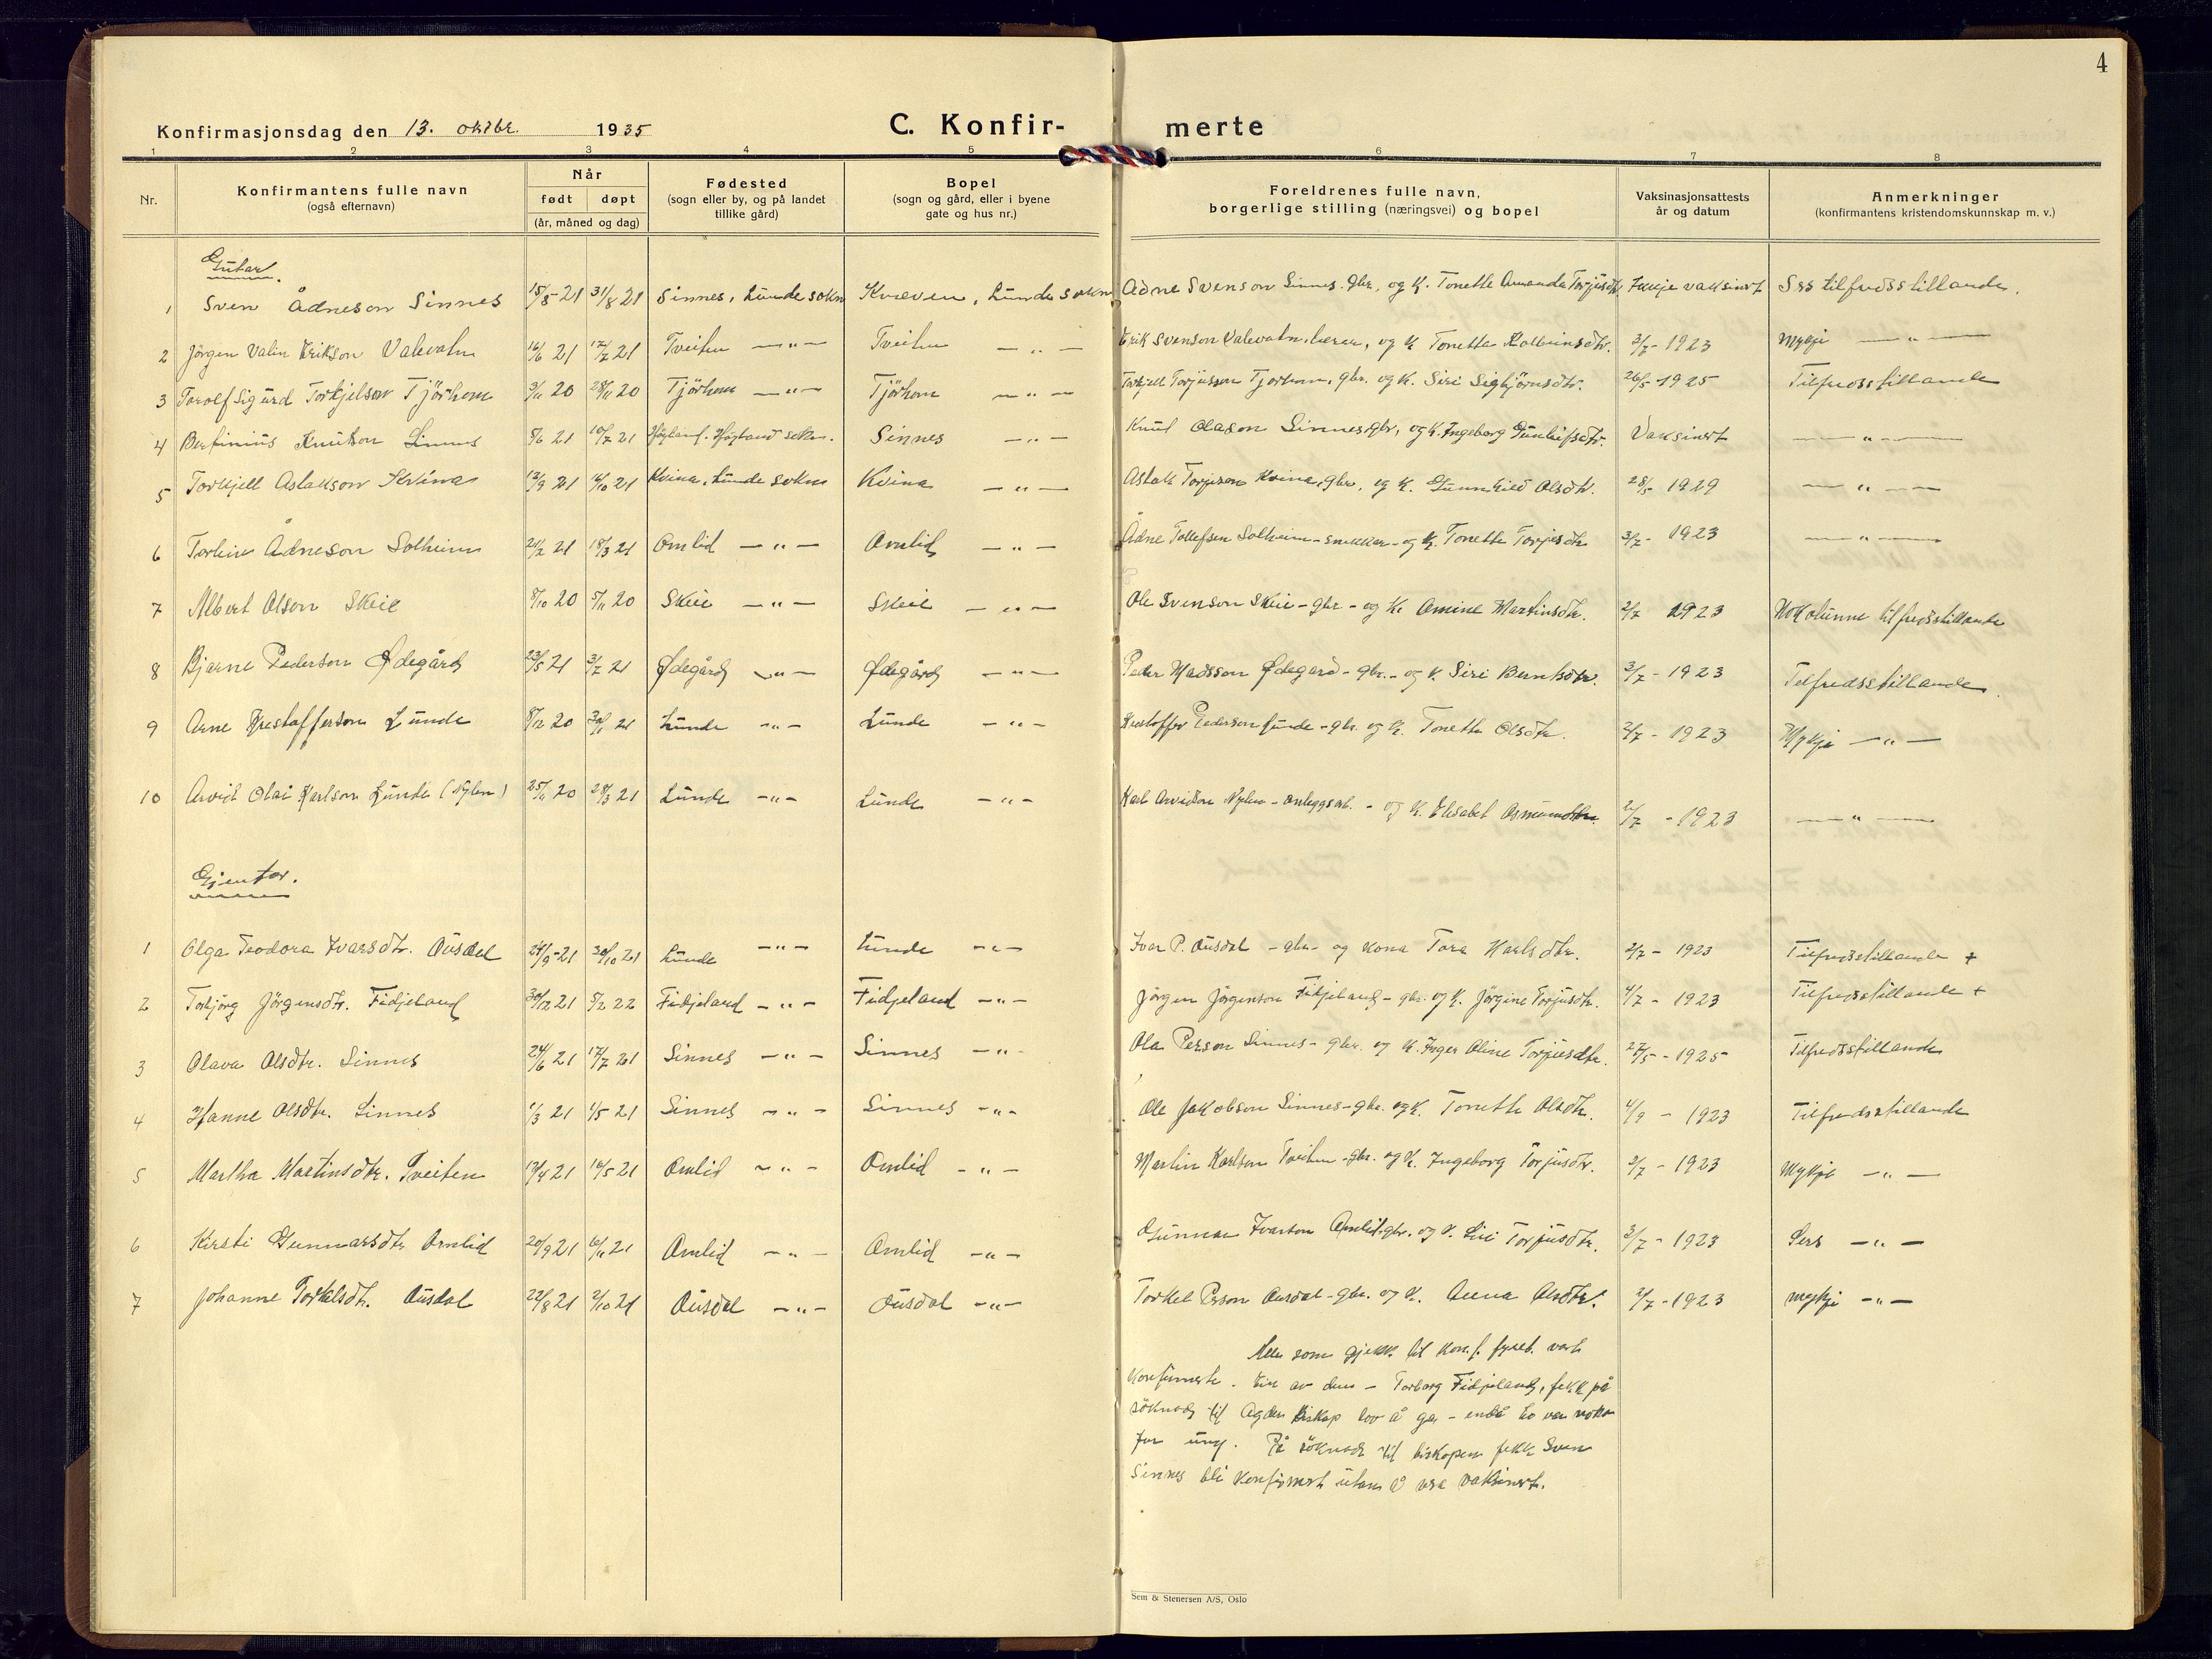 4
Konfirmasjonsdag den 13. oktbr. 1935 C. Konfir- merte
1 2 3 4 5 6 7 8
Nr. Konfirmantens fulle navn (også efternavn) Når født døpt (år, måned og dag) Fødested (sogn eller by, og på landet tillike gård) Bopel (sogn og gård, eller i byene gate og hus nr.) Foreldrenes fulle navn, borgerlige stilling (næringsvei) og bopel Vaksinasjonsattests år og datum Anmerkninger (konfirmantens kristendomskunnskap m. v.)
Gutar.
1 Sven Ådneson Sinnes 15/5 21 31/8 21 Sinnes, Lunde sokn Kvæven, Lunde sokn Ådne Svenson Sinnes. gbr, og K. Tonette Amanda Torjusdtr. Ikkje vaksinert Sers tilfredsstillande.
2 Jörgen Valin Erikson Valevatn 16/6 21 17/7 21 Tveiten —„— Tveiten —„— Erik Svenson Valevatn, lærar, og K Tonette Kolbeinsdtr. 3/7 - 1923 Mykje —„—
3 Torolf Sigurd Torkjelson Tjörhom 9/11 20 28/11 20 Tjörhom —„— Tjörhom —„— Torkjell Torjusson Tjorhom, gbr. og K. Siri Sigbjörnsdtr. 26/5 - 1925 Tilfredsstillande
4 Berfinius Knutson Sinnes 8/6 21 10/7 21 Högland. Högland sokn. Sinnes —„— Knut Olason Sinnes, gbr, og K. Ingeborg Gunleifsdtr. Vaksinert —„—
5 Torkjell Aslakson Kvina 12/9 21 16/10 21 Kvina, Lunde sokn Kvina —„— Aslak Torjuson Kvina, gbr, og K. Gunnhild Olsdtr. 28/5 - 1929 —„—
6 Torleiv Ådneson Solheim 21/2 21 18/3 21 Omlid —„— Omlid —„— Ådne Tollefsen Solheim - snekkar - og K. Tonette Torjusdtr 3/7 - 1923 —„—
7 Albert Olson Skeie 8/10 20 5/11 20 Skeie —„— Skeie —„— Ole Svenson Skeie - gbr - og K. Amine Martinsdtr. 2/7 1923 Nokolunne tilfredsstillande
8 Bjarne Pederson Ødegård 23/5 21 3/7 21 Ødegård —„— Ødegård —„— Peder Madsson Ødegård - gbr. - og K. Siri Berntsdtr. 3/7 - 1923 Tilfredsstillande.
9 Arne Kristofferson Lunde 8/12 20 30/1 21 Lunde —„— Lunde —„— Kristoffer Pederson Lunde - gbr. og K. Tonette Olsdtr. 2/7 - 1923 Mykje —„—
10 Arvid Olai Karlson Lunde (Nylen) 25/11 20 28/3 21 Lunde —„— Lunde —„— Karl Arvidson Nylen - anleggsarb. - og K. Elisabet Osmundsdtr. 2/7 - 1923 —„—
Gjentor.
1 Olga Teodora Ivarsdtr. Ousdal 24/9-21 30/10 21 Lunde —„— Lunde —„— Ivar P. Ousdal - gbr - og kona Tora Karlsdtr. 2/7 - 1923 Tilfredsstillande +
2 Torbjörg Jörgensdtr. Fidjeland 30/12 21 5/2 22 Fidjeland —„— Fidjeland —„— Jörgen Jörgenson Fidjeland - gbr. og K. Jörgine Torjusdtr. 4/7 - 1923 Tilfredsstillande +
3 Olava Olsdtr. Sinnes 24/6 21 17/7 21 Sinnes —„— Sinnes —„— Ola Person Sinnes - gbr. og K. Inger Oline Torjusdtr. 27/5 - 1925 Tilfredsstillande
4 Hanne Olsdtr. Sinnes 1/3 21 1/5 21 Sinnes —„— Sinnes —„— Ole Jakobson Sinnes - gbr. og K. Tonette Olsdtr. 4/9 - 1923 Tilfredsstillande
5 Martha Martinsdtr. Tveiten 17/4 21 16/5 21 Omlid —„— Omlid —„— Martin Karlsen Tveiten - gbr. og K. Ingeborg Torjusdtr. 2/7 - 1923 Mykje —„—
6 Kirsti Gunnarsdtr Omlid 20/9 21 6/11 21 Omlid —„— Omlid —„— Gunnar Ivarson Omlid - gbr. og K. Siri Torjusdtr. 3/7 - 1923 Sers —„—
7 Johanne Torkelsdtr. Ousdal 22/8 21 2/10 21 Ousdal —„— Ousdal —„— Torkel Person Ousdal - gbr. og K. Anna Olsdtr. 2/7 - 1923 mykje —„—
Alle som gjekk til konf. fyreb. vart
konfirmerte. Ein av dem - Torborg Fidjeland, fekk på
söknad til Agder biskop lov å gå - endå ho var noko
for ung. På söknad til biskopen fekk Sven
Sinnes bli konfirmert utan å vera vaksinert.
Sem & Stenersen A/S, Oslo